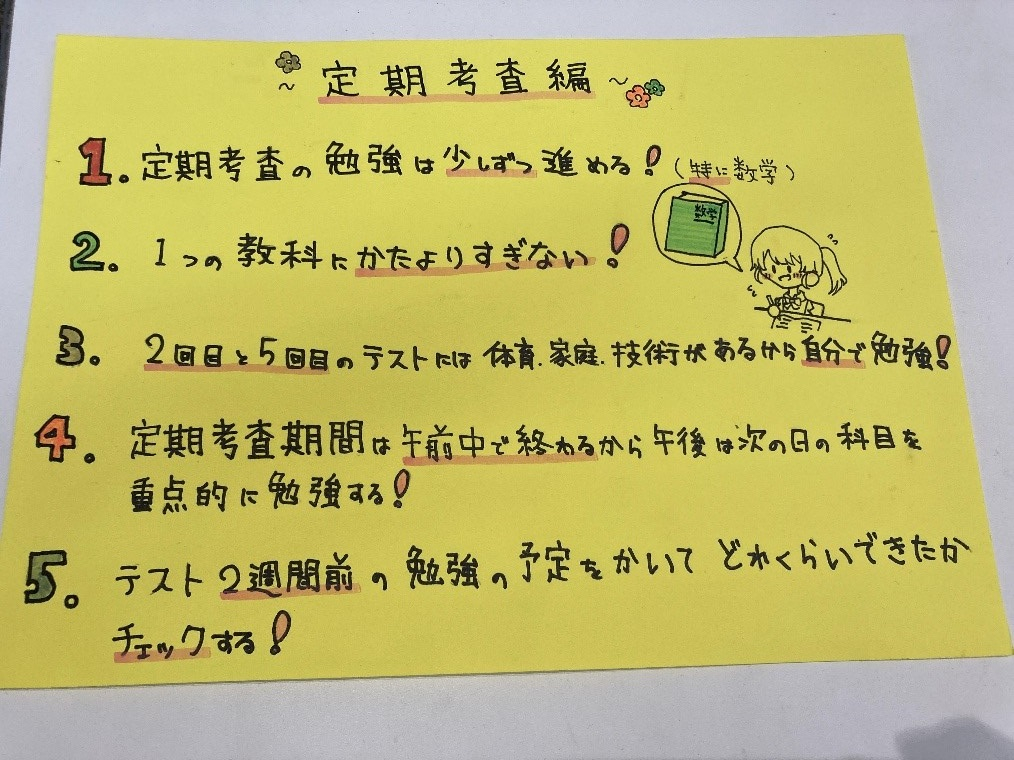 ～定期考査編～
1. 定期考査の勉強は少しずつ進める!(特に数学)
数学
2. 1つの教科にかたよりすぎない!
3. 2回目と5回目のテストには体育.家庭.技術があるから自分で勉強!
4. 定期考査期間は午前中で終わるから午後は次の日の科目を
重点的に勉強する!
5. テスト2週間前の勉強の予定をかいてどれくらいできたか
チェックする!